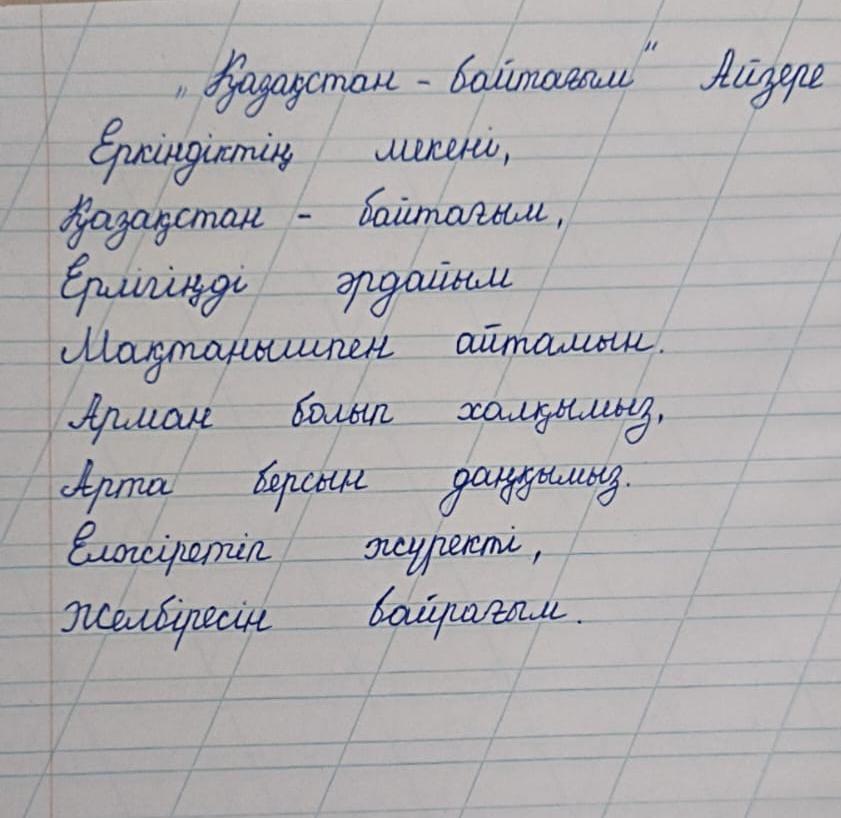 „Қазақстан - байтағым" Айзере
Еркіндіктің мекені,
Қазақстан - байтағым,
Ерлігіңді әрдайым
Мақтанышпен айтамын.
Арман болып халқымыз,
Арта берсын даңқымыз.
Елжіретіп жүректі,
Желбіресін байрағым.